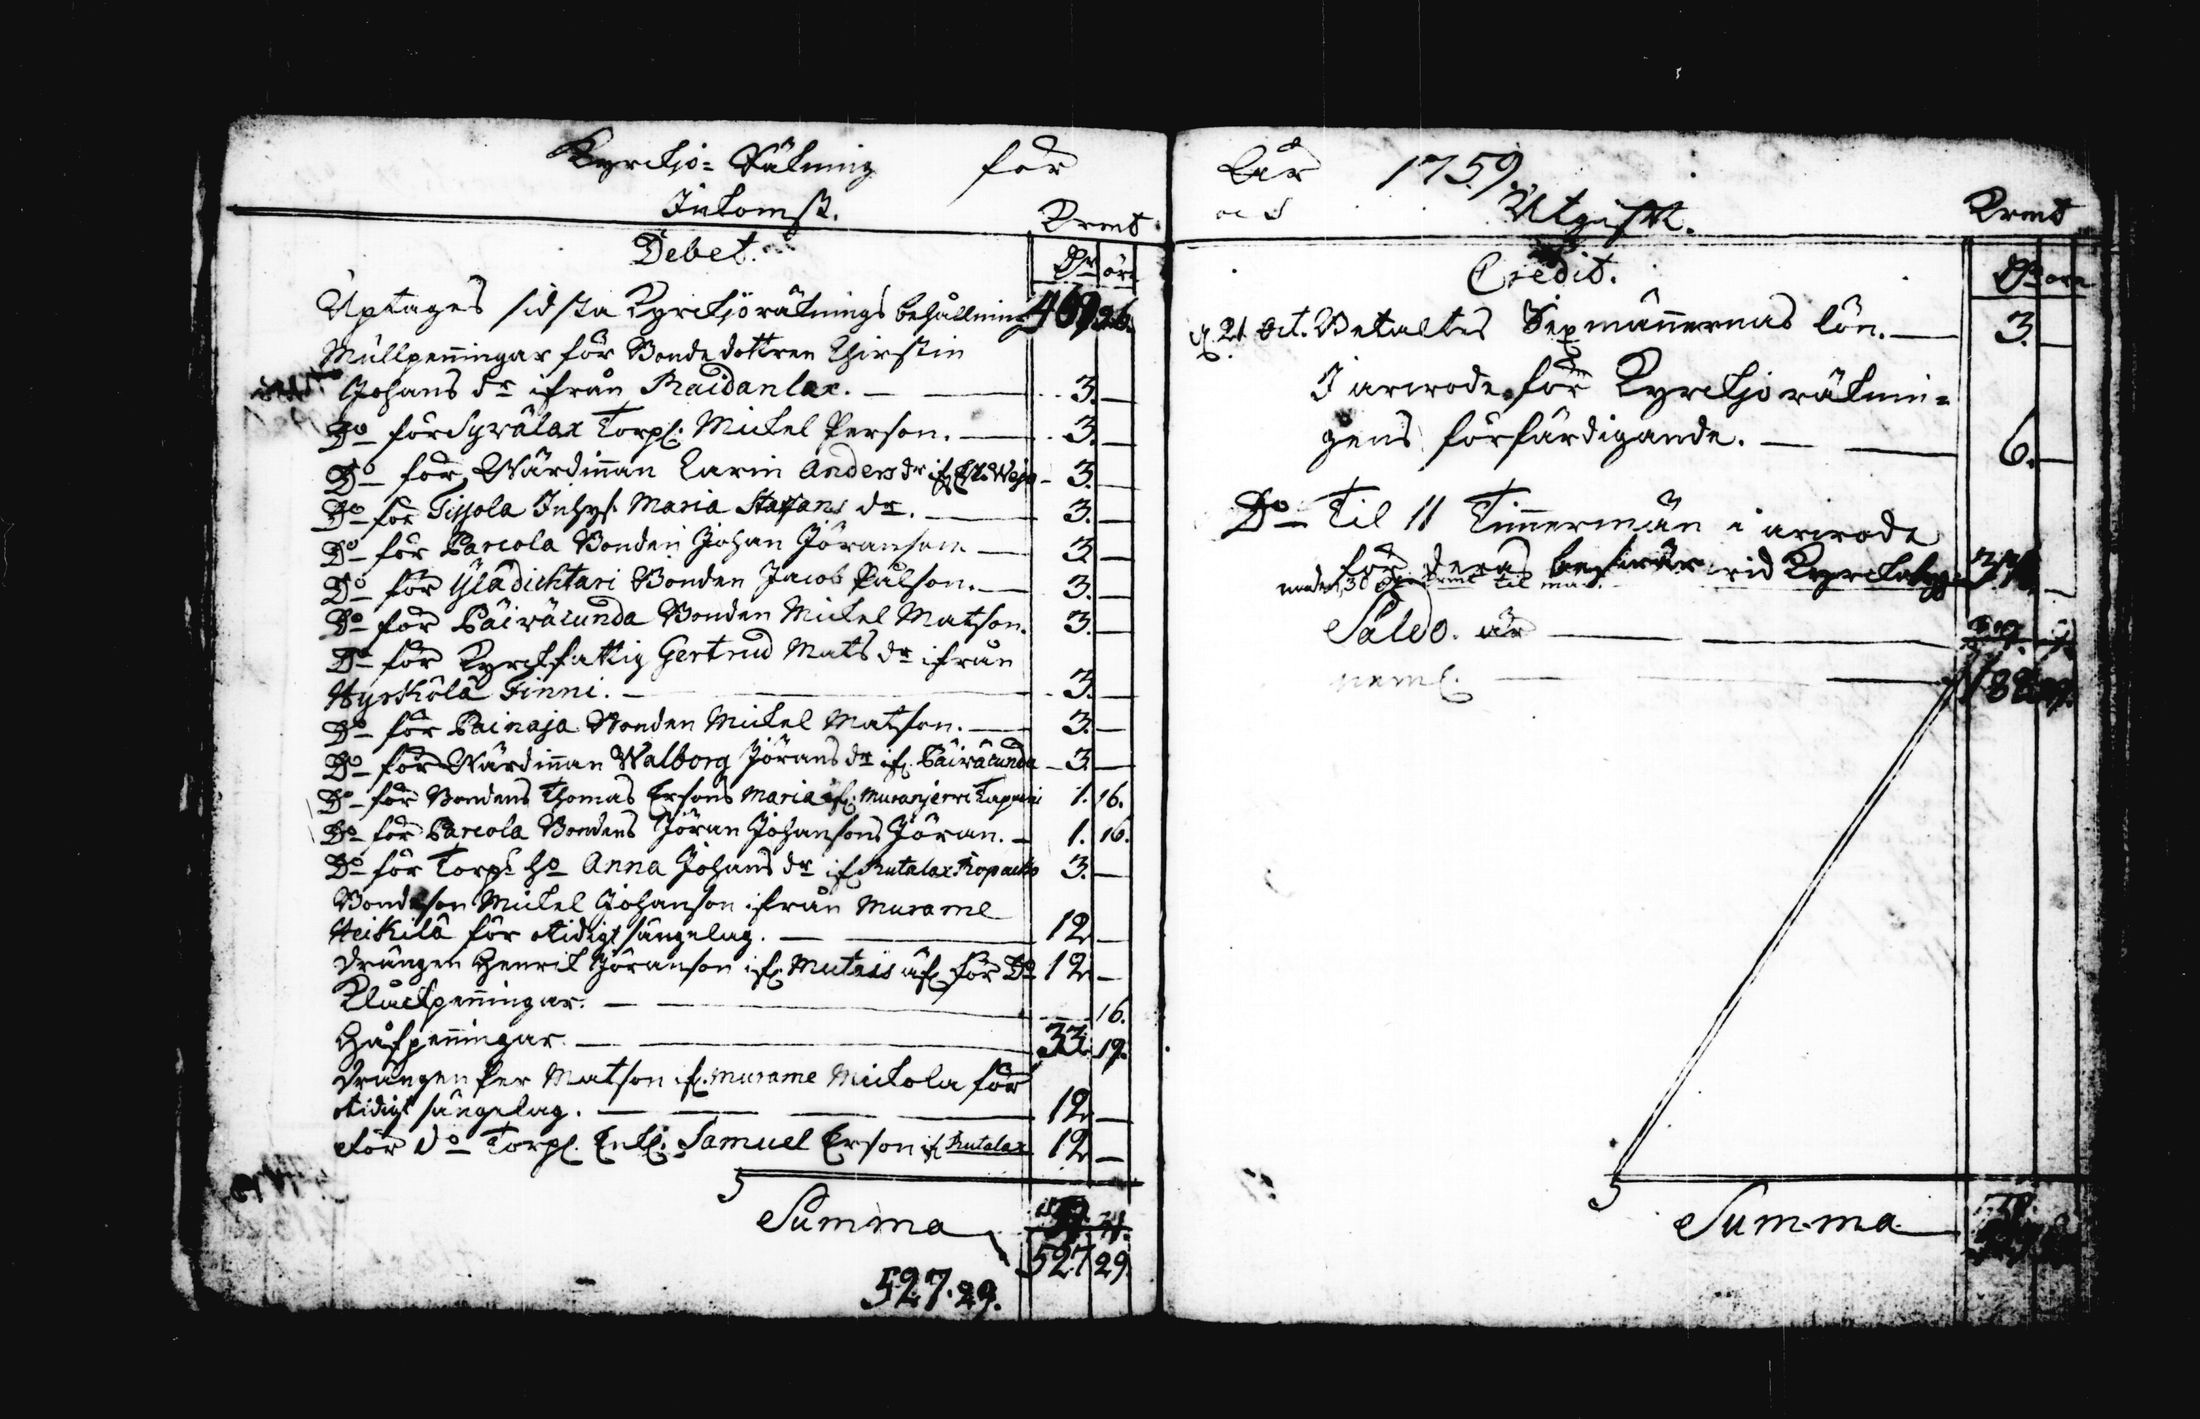 Kyrckjo= Räkning för
Inkomst. Krmt
Debet.
Dr öre
Uptages sidsta Kyrckjoräknings behållning 26.
Mullpenningar för Bondedottren Chirstin
Johans dr ifrån Raidanlax. — 3. —
Do för Syvälax Torp. Mickel Person. — 3. —
Do för Wärdinnan Carin Anders dr if. — 3. —
Do för Tissola Inhys. Maria Staffans dr. — 3. —
Do för Parcola Bonden Johan Jöranson — 3 —
Do för Ylä dichtari Bonden Jacob Pålson. — 3. —
Do för Päiväcunda Bonden Mickel Matson. 3. —
Do för Kyrckfattig Gertrud Mats dr ifrån
Hyrskölä Finni. — 3. —
Do för Painaja Bonden Mickel Matson. — 3. —
Do för Wärdinnan Walborg Jörans dr if. Päiväcunda — 3. —
Do för Bondens Thomas Ersons Maria if. Muranjerwi Tapani 1. 16.
Do för Parcola Bondens Jöran Johansons Jöran. — 1. 16.
Do för Torp. ho Anna Johans dr if. Rutalax 3. —
Bondeson Mickel Johanson ifrån Murame
Heikilä för otidigt sängelag. — 12 —
Drängen Henrik Jöranson if. för Do 12 —
Kläckpenningar. — 16.
Håfpenningar — 33. 19.
Drängen Per Matson if. Murame Mickola för
otidigt sängelag. — 12 —
för do Torp. Enkl. Samuel Erson if. Rutalax 12 —
Summa
527 29.
527. 29.
Åhr 1759.
och Utgift. Krmt
Credit.
Dr öre
d. 21 Oct. Betaltes Sexmännernas lön. — 3. —
I arvode för Kyrckjoräknin=
gens förfärdigande. — 6. —
Do Til 11 Timmermän i arvode
för deras besvär vid
Saldo. är —
neml. —
Summa